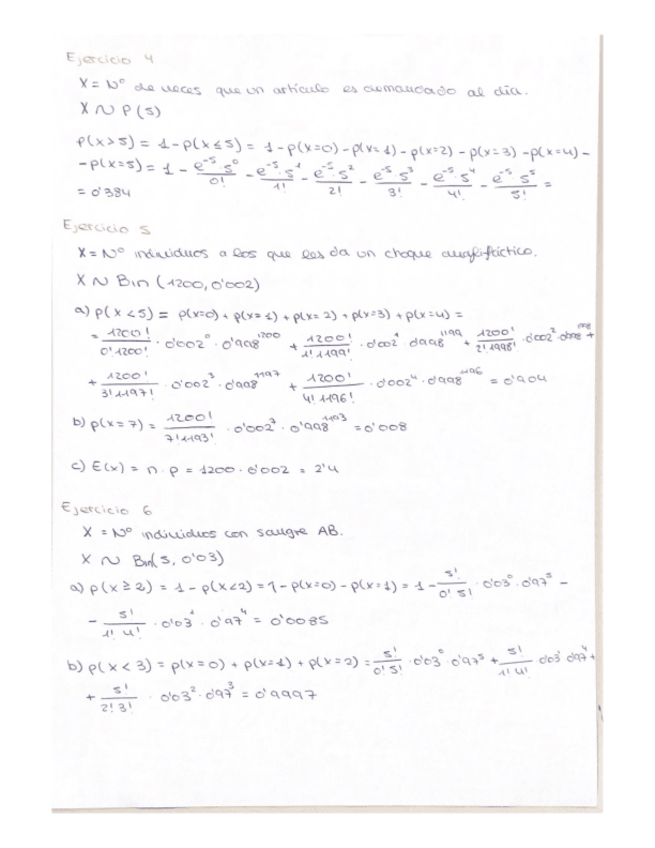 Ejercicio 4
X = Nº de veces que un artículo es demandado al día.
X ~ P(5)
P(X>5) = 1 - P(X≤5) = 1 - P(X=0) - P(X=1) - P(X=2) - P(X=3) - P(X=4) -
- P(X=5) = 1 - e^-5·5^0/0! - e^-5·5^1/1! - e^-5·5^2/2! - e^-5·5^3/3! - e^-5·5^4/4! - e^-5·5^5/5! =
= 0'384
Ejercicio 5
X = Nº individuos a los que les da un choque anafiláctico.
X ~ Bin (1200, 0'002)
a) P(X<5) = P(X=0) + P(X=1) + P(X=2) + P(X=3) + P(X=4) =
= 1200!/0!1200! · 0'002^0 · 0'998^1200 + 1200!/1!1199! · 0'002^1 · 0'998^1199 + 1200!/2!1198! · 0'002^2 · 0'998^1198 +
+ 1200!/3!1197! · 0'002^3 · 0'998^1197 + 1200!/4!1196! · 0'002^4 · 0'998^1196 = 0'904
b) P(X=7) = 1200!/7!1193! · 0'002^7 · 0'998^1193 = 0'008
c) E(X) = n · p = 1200 · 0'002 = 2'4
Ejercicio 6
X = Nº individuos con sangre AB.
X ~ Bin(5, 0'03)
a) P(X≥2) = 1 - P(X<2) = 1 - P(X=0) - P(X=1) = 1 - 5!/0!5! · 0'03^0 · 0'97^5 -
- 5!/1!4! · 0'03^1 · 0'97^4 = 0'0085
b) P(X<3) = P(X=0) + P(X=1) + P(X=2) = 5!/0!5! · 0'03^0 · 0'97^5 + 5!/1!4! · 0'03^1 · 0'97^4 +
+ 5!/2!3! · 0'03^2 · 0'97^3 = 0'9997